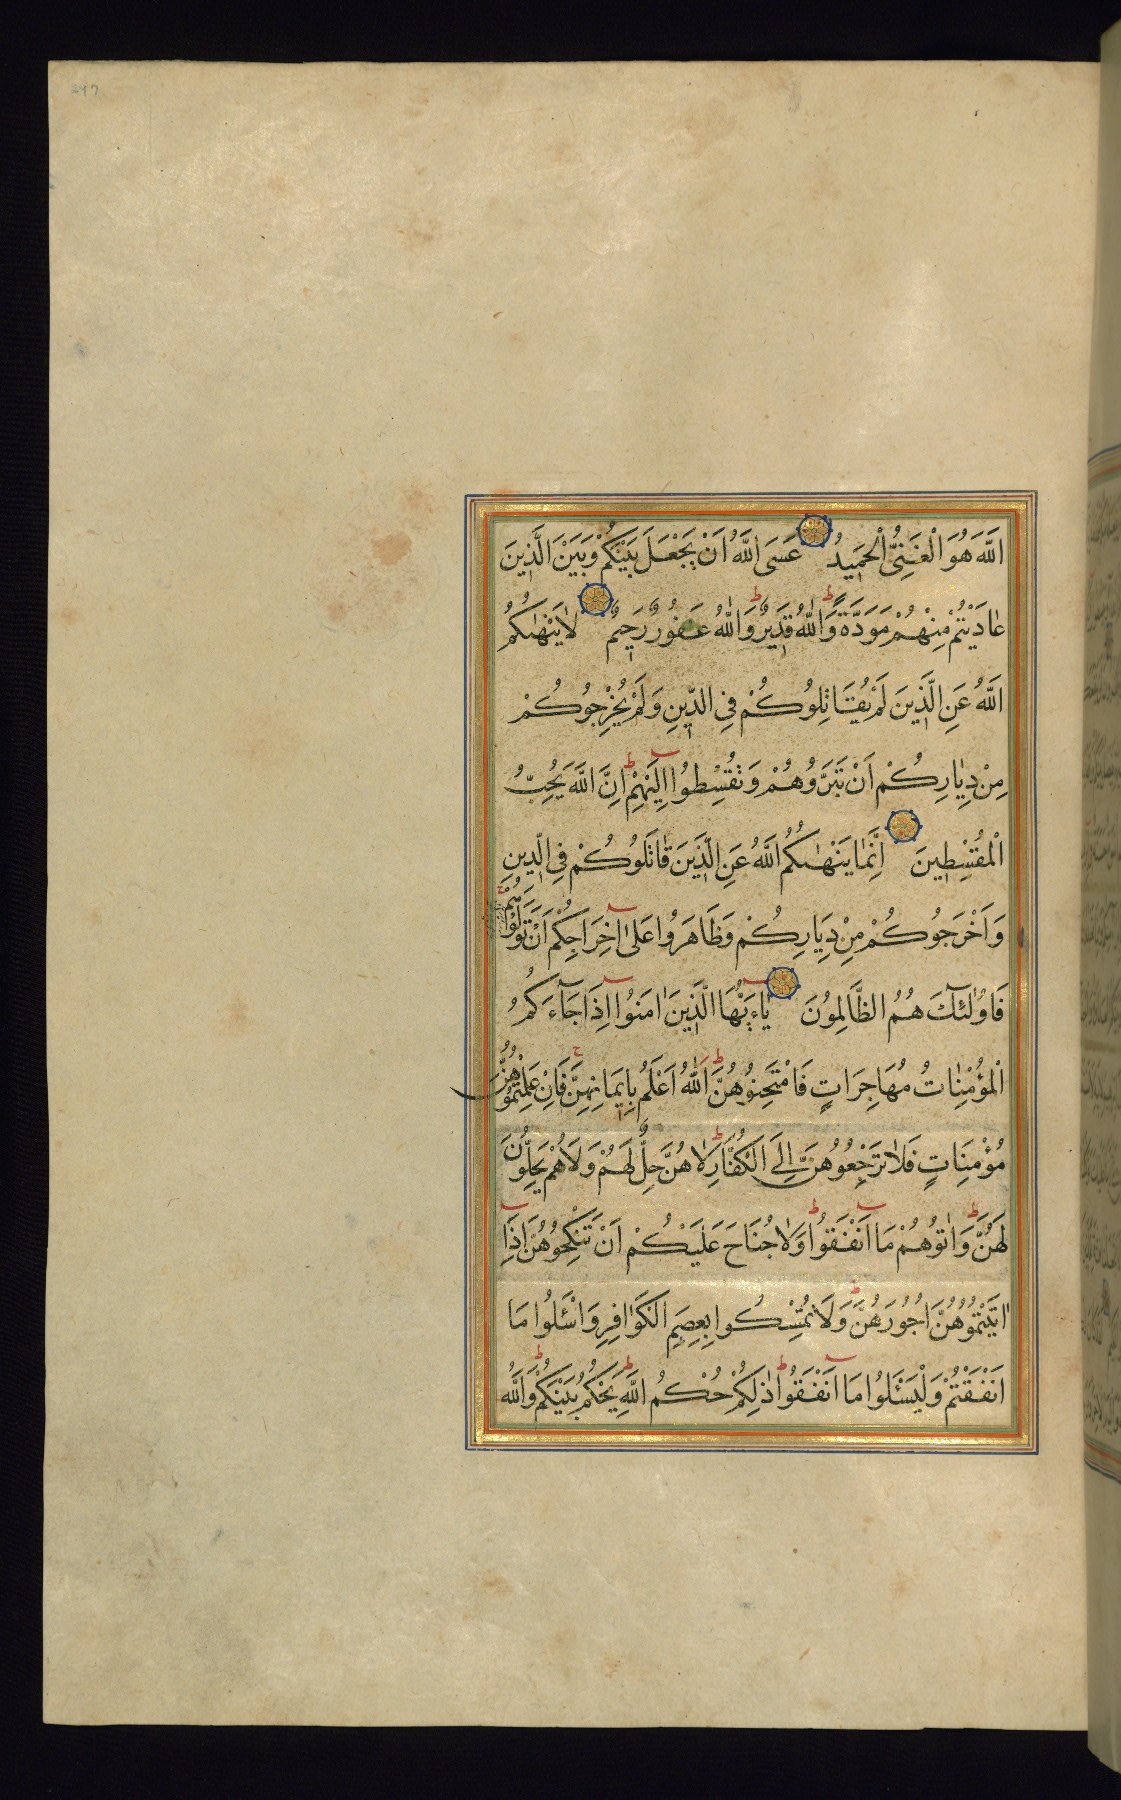 اللَّهَ هُوَ الْغَنِيُّ الْحَمِيدُ عَسَى اللَّهُ اَنْ يَجْعَلَ بَيْنَكُمْ وَبَيْنَ الَّذِينَ
عَادَيْتُمْ مِنْهُمْ مَوَدَّةً وَاللَّهُ قَدِيرٌ وَاللَّهُ غَفُورٌ رَحِيمٌ لَا يَنْهٰىكُمُ
اللَّهُ عَنِ الَّذِينَ لَمْ يُقَاتِلُوكُمْ فِى الدِّينِ وَلَمْ يُخْرِجُوكُمْ
مِنْ دِيَارِكُمْ اَنْ تَبَرُّوهُمْ وَتُقْسِطُوا اِلَيْهِمْ اِنَّ اللَّهَ يُحِبُّ
الْمُقْسِطِينَ اِنَّمَا يَنْهٰىكُمُ اللَّهُ عَنِ الَّذِينَ قَاتَلُوكُمْ فِى الدِّينِ
وَاَخْرَجُوكُمْ مِنْ دِيَارِكُمْ وَظَاهَرُوا عَلٰى اِخْرَاجِكُمْ اَنْ تَوَلَّوْهُمْ وَمَنْ يَتَوَلَّهُمْ
فَاُولٰئِكَ هُمُ الظَّالِمُونَ يَاءَيُّهَا الَّذِينَ اٰمَنُوا اِذَا جَاءَكُمُ
الْمُؤْمِنَاتُ مُهَاجِرَاتٍ فَامْتَحِنُوهُنَّ اَللَّهُ اَعْلَمُ بِاِيمَانِهِنَّ فَاِنْ عَلِمْتُمُوهُنَّ
مُؤْمِنَاتٍ فَلَا تَرْجِعُوهُنَّ اِلَى الْكُفَّارِ لَا هُنَّ حِلٌّ لَهُمْ وَلَا هُمْ يَحِلُّونَ
لَهُنَّ وَاٰتُوهُمْ مَا اَنْفَقُوا وَلَا جُنَاحَ عَلَيْكُمْ اَنْ تَنْكِحُوهُنَّ اِذَا
اٰتَيْتُمُوهُنَّ اُجُورَهُنَّ وَلَا تُمْسِكُوا بِعِصَمِ الْكَوَافِرِ وَاسْـَٔلُوا مَا
اَنْفَقْتُمْ وَلْيَسْـَٔلُوا مَا اَنْفَقُوا ذٰلِكُمْ حُكْمُ اللَّهِ يَحْكُمُ بَيْنَكُمْ وَاللَّهُ